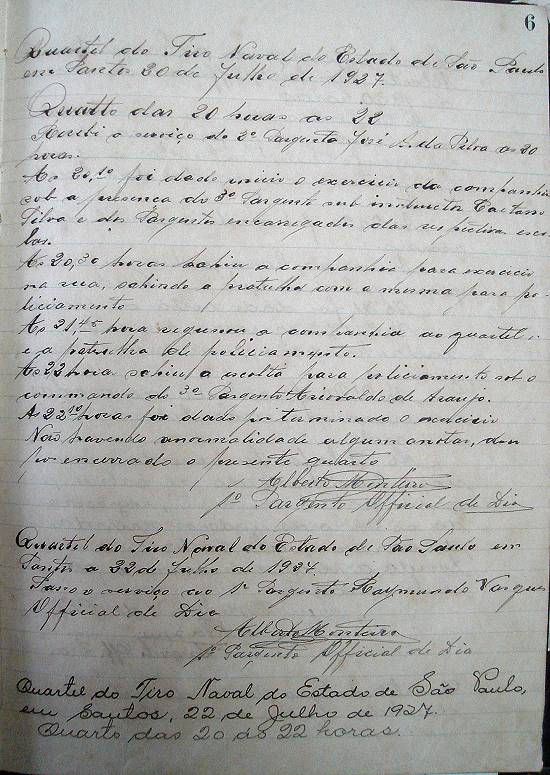 6
Quartel do Tiro Naval do Estado de São Paulo
em Santos 20 de Julho de 1927.
Quatto das 20 horas as 22
Recebi o serviço do 2º Sargento José A. da Silva as 20
horas.
As 20,10 foi dado inicio o exercicio da companhia
sob a presença do 3º Sargento sub instructor Caetano
Silva e dos Sargentos encarregados das respectivas esco-
las.
As 20,30 horas sahiu a companhia para exercicio
na rua, sahindo a patrulha com a mesma para po-
liciamento
As 21,45 hora regressou a companhia ao quartel
e a patrulha de policiamento.
As 22 hora sahiu a escolta para policiamento sob o
commando do 3º Sargento de Araujo.
As 22 10 horas foi dado por terminado o exercicio
Não havendo anormalidade algum anotar, dou
por encerrado o presente quarto
Alberto Monteiro
1º Sargento Official de Dia
Quartel do Tiro Naval do Estado de São Paulo em
Santos a 22 de Julho de 1927.
Passo o serviço ao 1º Sargento Raymundo Vasques
Official de Dia
Alberto Monteiro
1º Sargento Official de Dia
Quartel do Tiro Naval do Estado de São Paulo,
em Santos, 22 de Julho de 1927.
Quarto das 20 ás 22 horas.